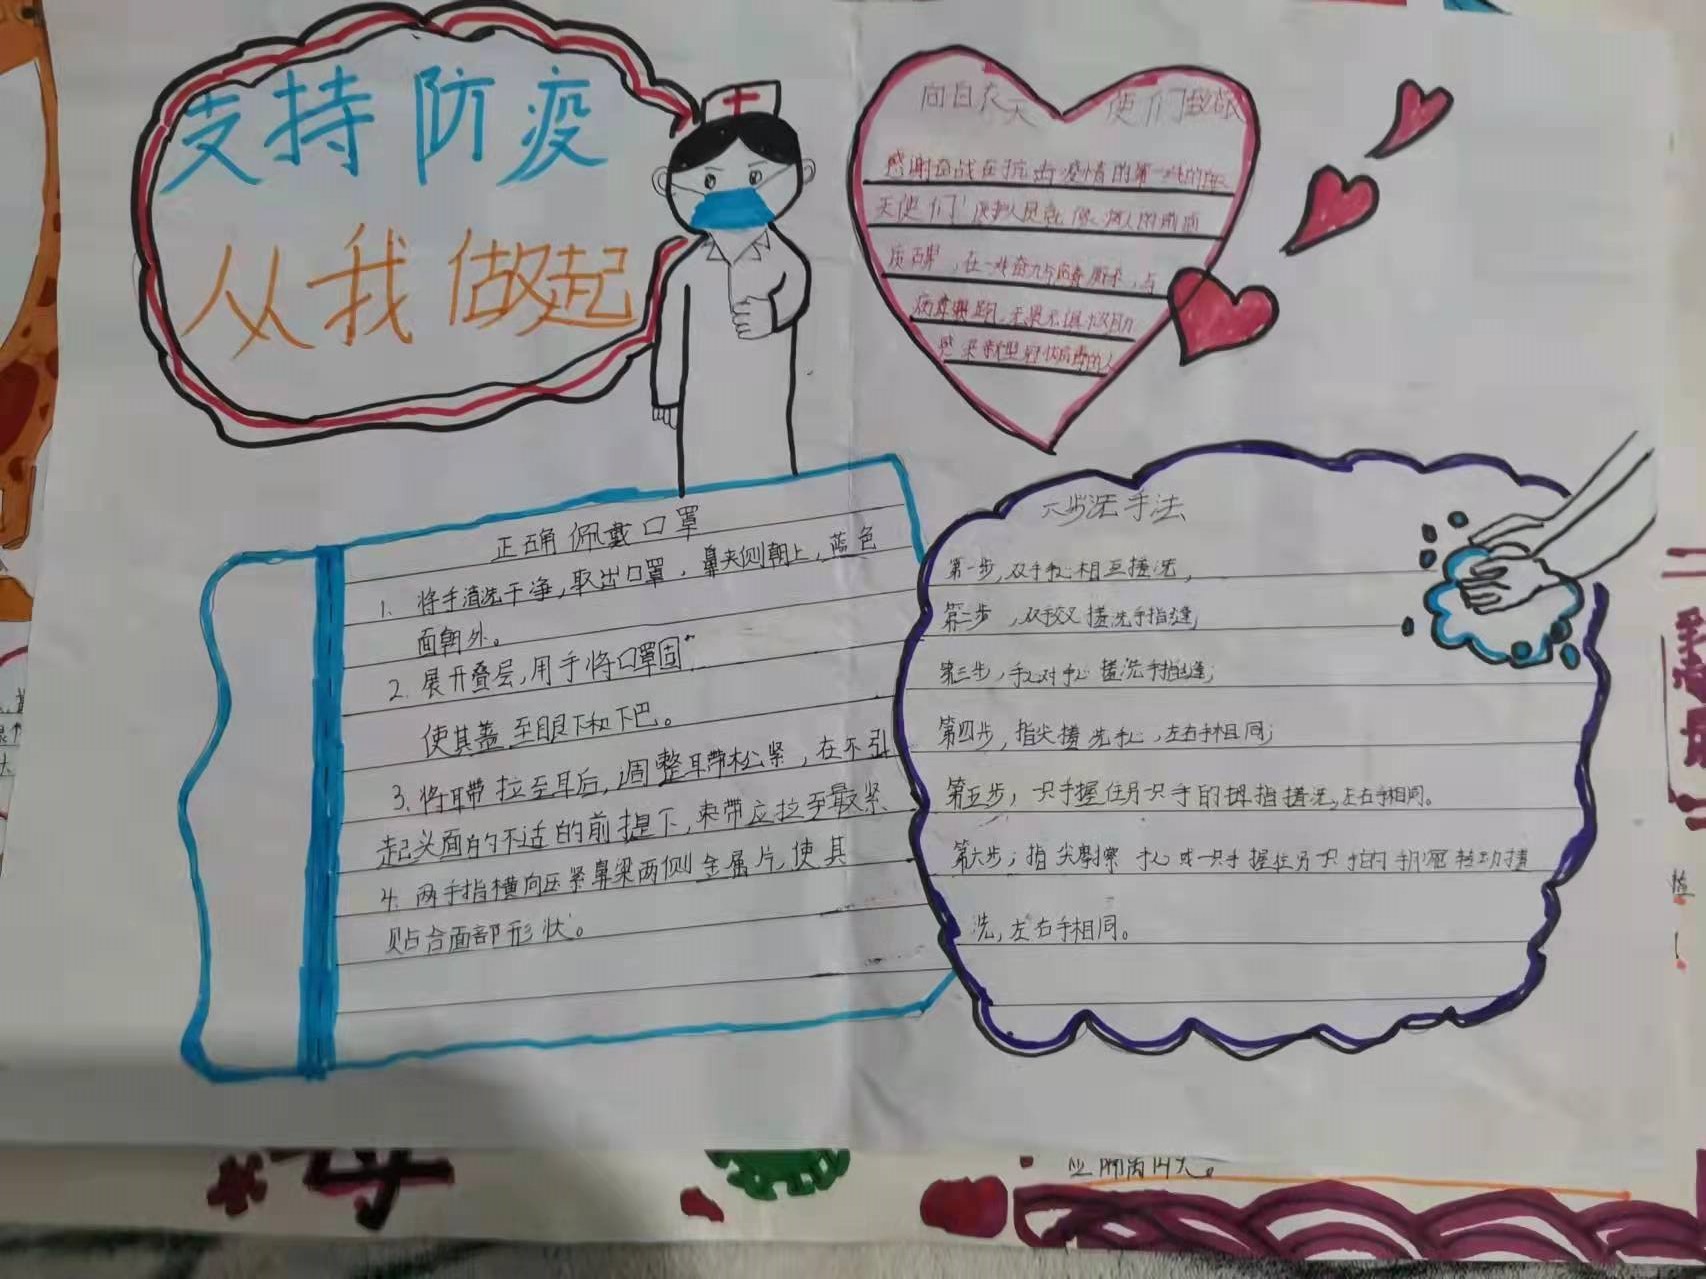 支持防疫
从我做起
向白衣天使们致敬
感谢奋战在抗击疫情的第一线的
天使们！医护人员就像病人的
病毒
正确佩戴口罩
1. 将手清洗干净，取出口罩，鼻夹侧朝上，蓝色
面朝外。
2. 展开叠层，用手将口罩固
使其盖至眼下和下巴。
3. 将耳带拉至耳后，调整耳带松紧，在不引
起头面的不适的前提下，束带应拉至最紧
4. 两手指横向压紧鼻梁两侧金属片，使其
贴合面部形状。
六步洗手法
第一步，双手手心相互搓洗，
第二步，双手交叉搓洗手指缝，
第三步，手心对手心搓洗手指缝；
第四步，指尖搓洗手心，左右手相同；
第五步，一只手握住另一只手的拇指搓洗，左右手相同。
第六步；指尖摩擦手心或一只手握住另一只手的手腕转动搓
洗，左右手相同。